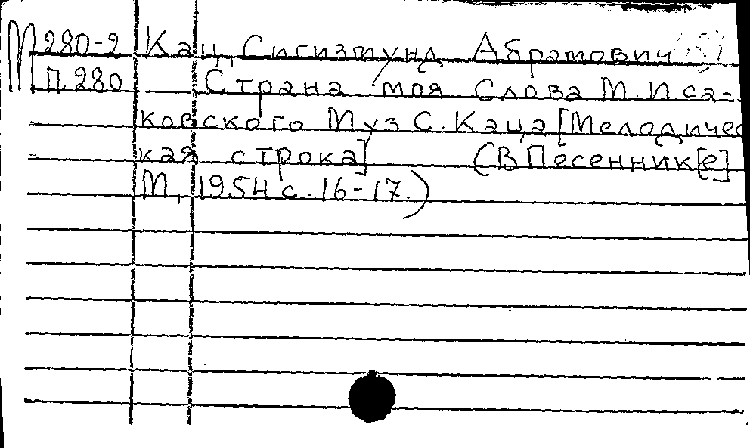 М 280-2 Кац, Сигизмунд Абрамович
П.280 Страна моя Слова М. Иса-
ковского Муз С. Каца [Мелодичес
кая строка] (В Песенник[е]
М, 1954 с. 16-17.)